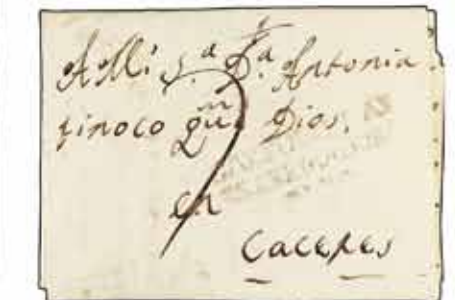 A Mi S.ª D.ª Antonia
tinoco q.n Dios.
en
Caceres